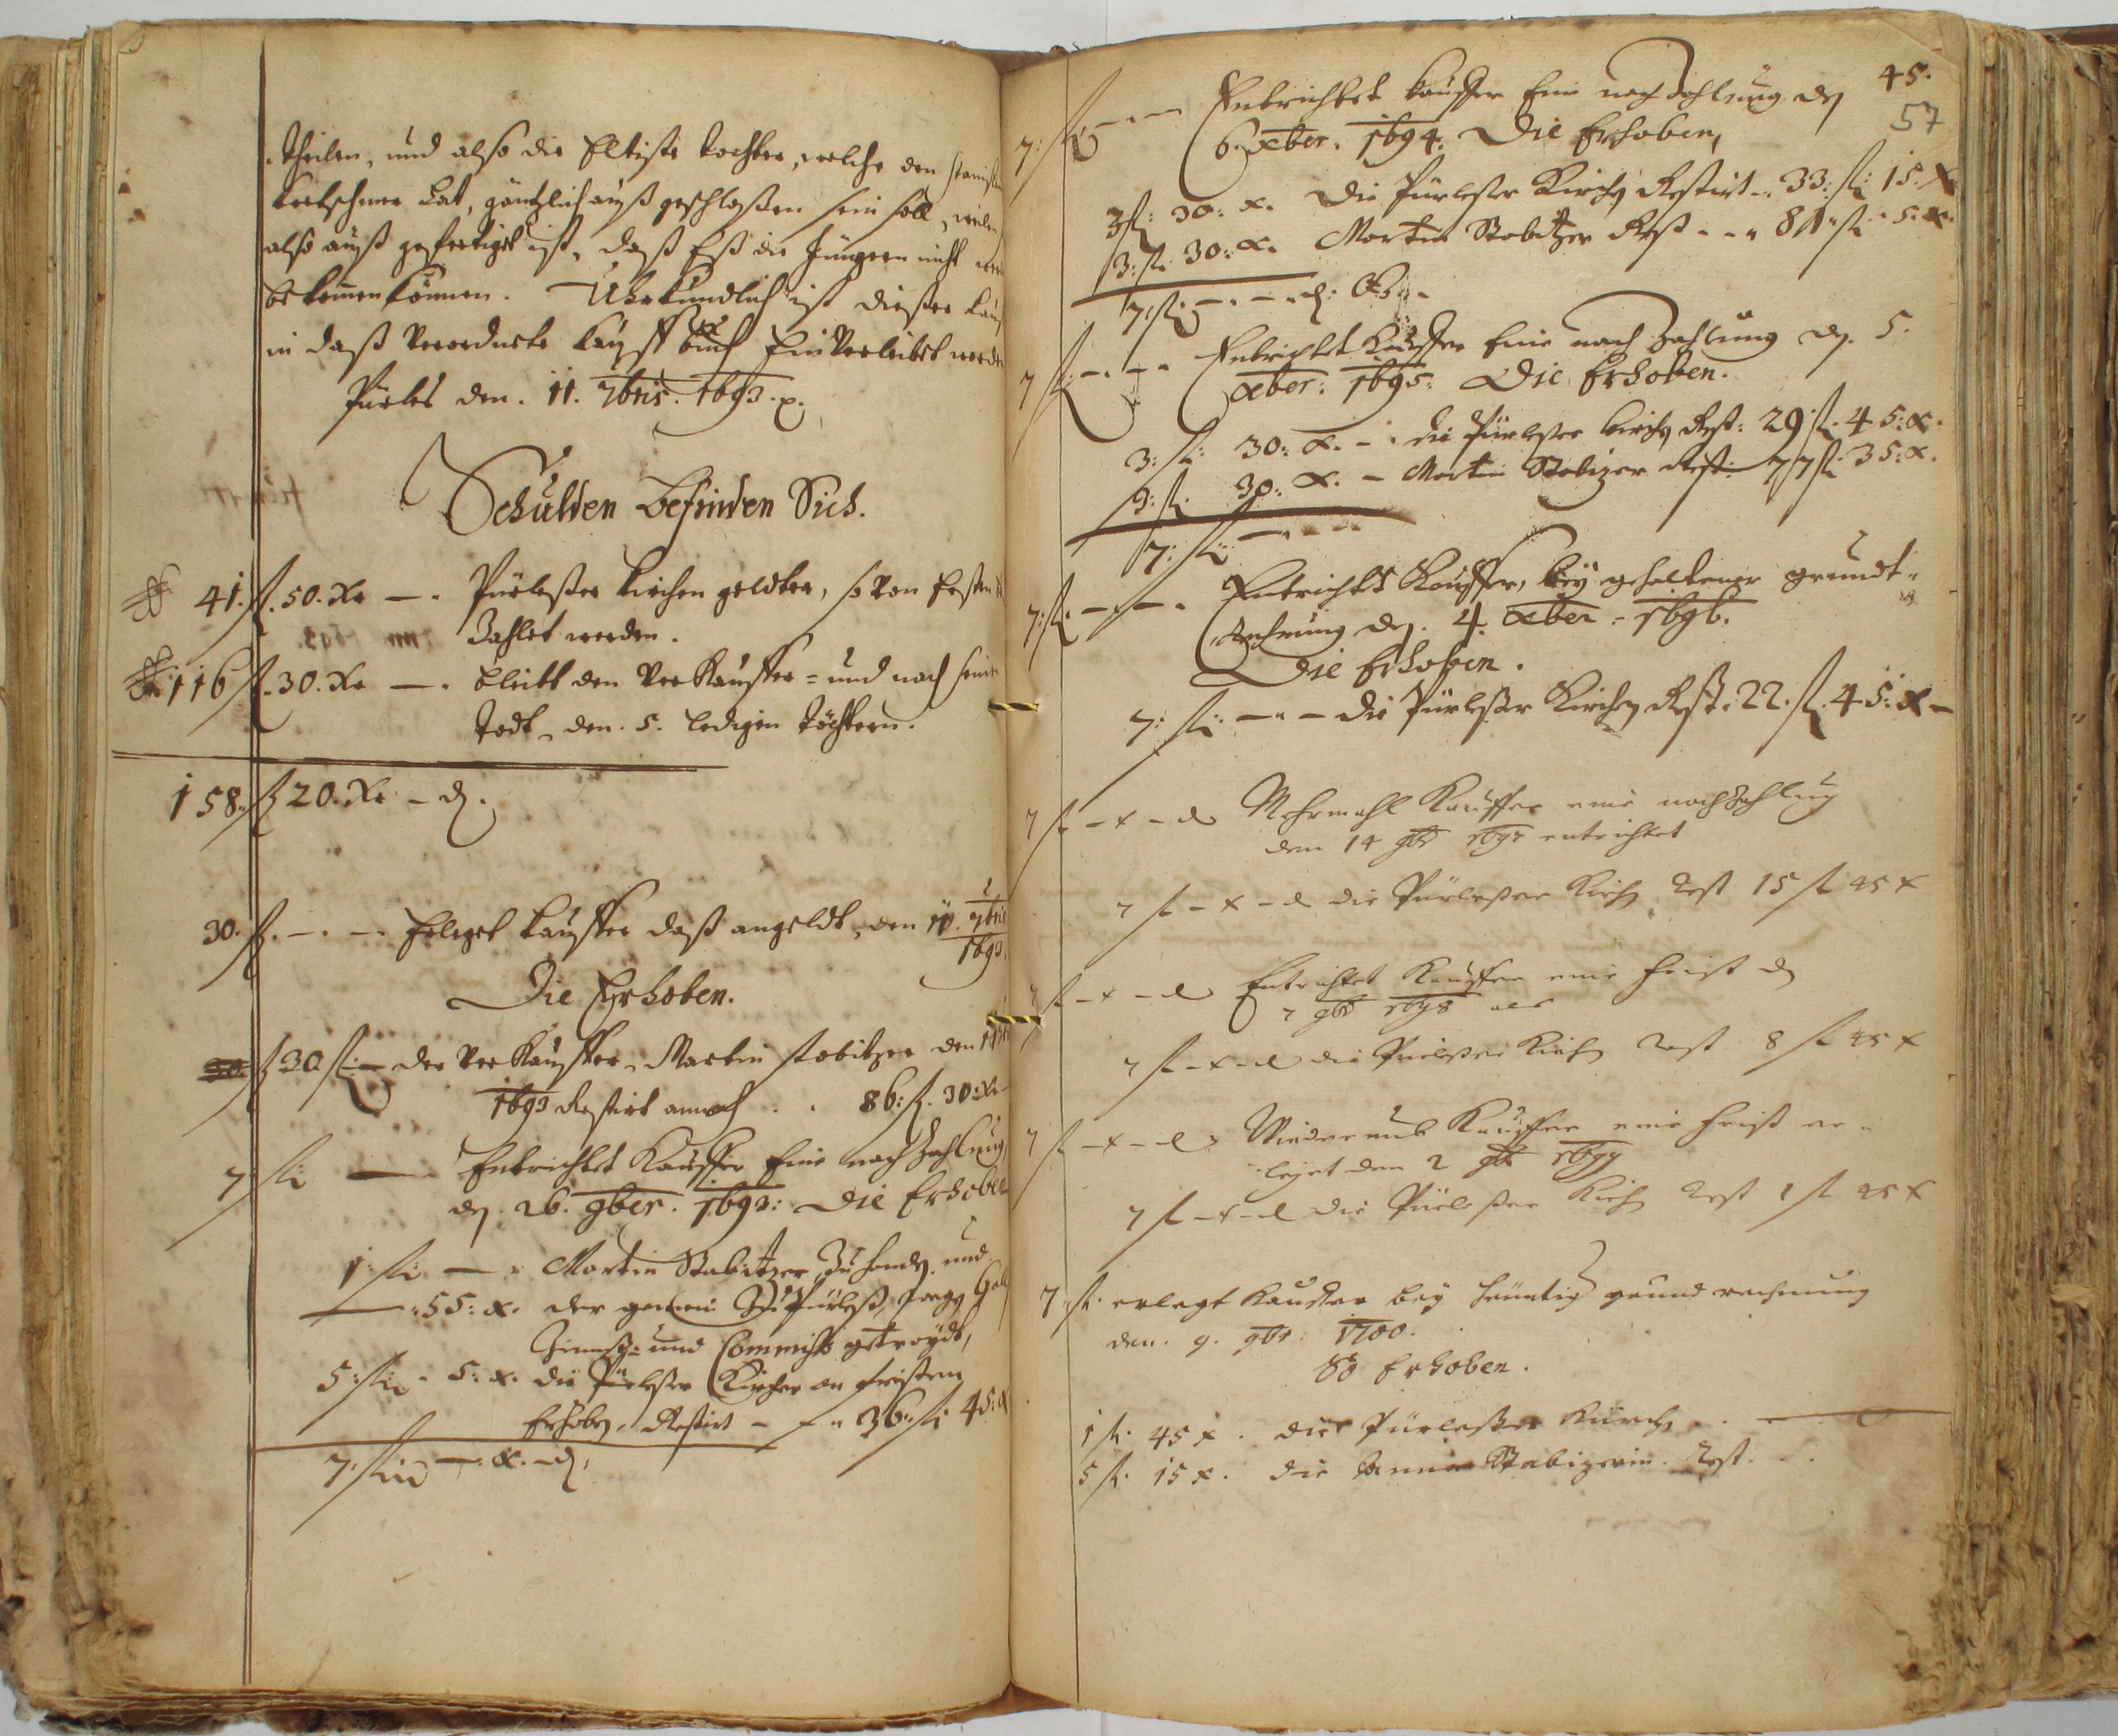 theilen, und also die Eltiste tochter, welche den
Kretschmer hat, gäntzlich auß geschloßen sein soll, weilen
also auß gefertiget ist, daß Eß die Jüngern nicht
bekommen können. Uhrkundlich ist dießer Kauf
in daß Verordnete Kauff buch Ein Verleibet
Pürles den. 11. 7bris. 1693.
Schulden Befinden Sich.
41 fl. 50. Xr — Pürleßer Kirchen gelder, so von
Zahlet werden.
116 fl. 30. Xr — bleibt den Verkauffer = und nach
todt, den. 5. ledigen töchtern.
158 fl 20. Xr — d.
30. fl. — . — Erleget Kauffer daß angeldt, den 11. 7bris
1693.
Die Erhoben.
30 fl — der Verkauffer, Martin Stobitzer den
1693 Restirt annoch . . 86: fl. 30: Xr
7 fl — Entrichtet Kauffer Eine nach Zahlung
26. 9ber. 1693: Die Erhoben
1: fl: — Martin Stabitzer Zu handen und
— 55: x. der gemein Zu Pürleß,
Zinnß= und Commiß getraydt,
5: fl: 5: x. die Pürleßer Kirchen an fristen
Erhoben, Restirt — 36: fl: 45: x
7: fl — x. — d.
45.
57
7: fl — Entrichtet Kauffer Eine nach Zahlung den
6. xber. 1694. Die Erhoben,
3 fl: 30: x. Die Pürleßer Kirchen Restirt 33: fl: 15: x
3: fl: 30: x. Martin Stobitzer Rest — 81 fl 5: x.
7: fl: — . — d:
7 fl: — . — Entrichtet Kauffer Eine nach Zahlung den. 5.
xber: 1695: Die Erhoben.
3: fl: 30: x. — die Pürleßer Kirchen Rest: 29 fl. 45: x.
3: fl. 30: x. — Martin Stobizer Rest: 77 fl 35: x.
7: fl: —
7: fl. — . — Entricht Kauffer, bey gehaltener grundt=
Rechnung den. 4. xber = 1696.
Die Erhoben.
7: fl: — . — die Pürleßer Kirchen Rest: 22. fl. 45: x —
7 fl — x — d Mehrmahl Kauffer eine nachzahlung
den 14 9br 1697 entrichtet
7 fl — x — d die Pürleßer Kirch Rest 15 fl 45 x
7 fl — x — d Entrichtet Kauffer eine frist d
7 9br 1698 als
7 fl — x — d die Pürleßer Kirch Rest 8 fl 45 x
7 fl — x — d Wiederumb Kauffer eine frist er=
leget den 2 9br 1699
7 fl — x — d die Pürleßer Kirch Rest 1 fl 45 x
7. fl. erlegt Kauffer bey heuntig grund rechnung
den. 9. 9br: 1700.
So Erhoben.
1 fl. 45 x. die Pürleßer Kürch . . —
5 fl. 15 x. die Anna Stabizerin. Rest. . .